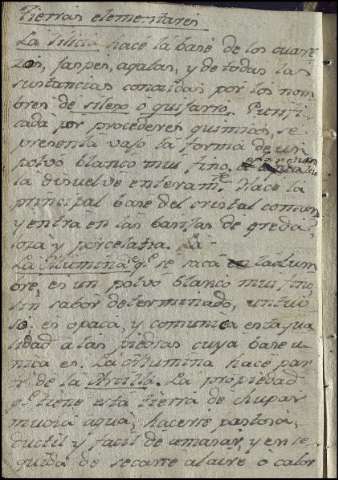 Tierras elementares
La Silicia hace la base de los cuar
zos, jaspes, agatas, y de todas las
sustancias conocidas por los nom
bres de silexo o guijarro. Purifi
cada por procederes quimicos, se
presenta vajo la forma de un
polvo blanco mui fino,
la disuelve enteram.te Hace la
principal base del cristal comun
y entra en las
y porcelana.
La Alumina q.e se saca
bre, es un polvo blanco mui fino,
sin sabor determinado, untuo
so. es opaca, y comunica esta qua
lidad a las piedras cuya base u
nica es. La Alumina hace par
te de la Arcilla. La propiedad
q.e tiene esta tierra de chupar
mucha agua, hacerse pastosa,
ductil y facil de amasar, y en se
guida de secarse al aire o calor